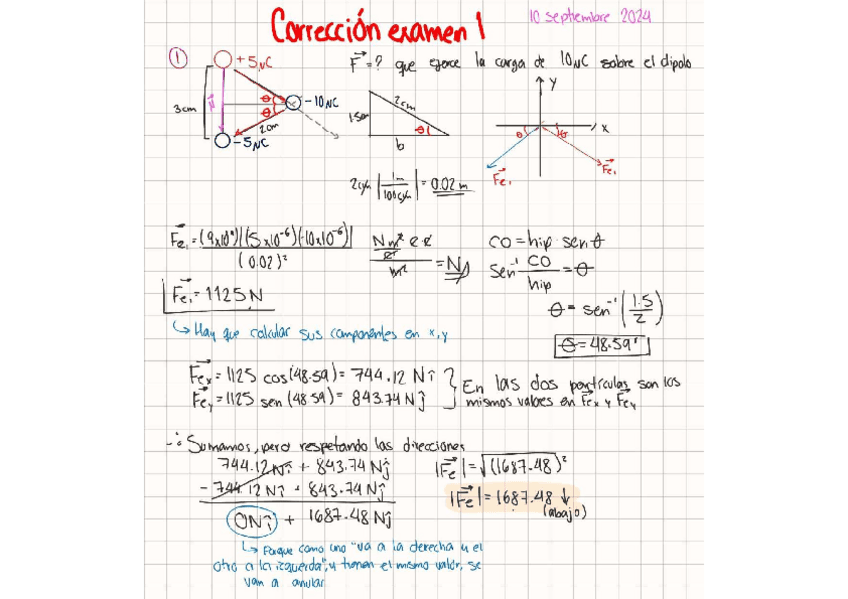 Corrección examen 1
10 septiembre 2024
① +5μC
F=? que ejerce la carga de 10μC sobre el dipolo
-10μC
3cm
θ
θ
2cm
-5μC
2cm
1.5cm
θ
b
y
x
θ
θ
Fe₁
Fe₁
2cm |1m/100cm| = 0.02m
Fe₁ = (9x10⁹)|(5x10⁻⁶)(-10x10⁻⁶)| / (0.02)²
N m² c c / c² / m² = N
CO = hip senθ
sen⁻¹ CO/hip = θ
Fe₁ = 1125 N
θ = sen⁻¹(1.5/2)
↳ Hay que calcular sus componentes en x,y
θ = 48.59°
Fex = 1125 cos(48.59) = 744.12 N î
Fey = 1125 sen(48.59) = 843.74 N ĵ
En las dos partículas son los
mismos valores en Fex y Fey
∴ Sumamos, pero respetando las direcciones
744.12 N î + 843.74 N ĵ
- 744.12 N î + 843.74 N ĵ
0N î + 1687.48 N ĵ
|Fe| = √(1687.48)²
|Fe| = 1687.48 ↓
(abajo)
↳ Porque como uno "va a la derecha y el
otro a la izquierda", y tienen el mismo valor, se
van a anular